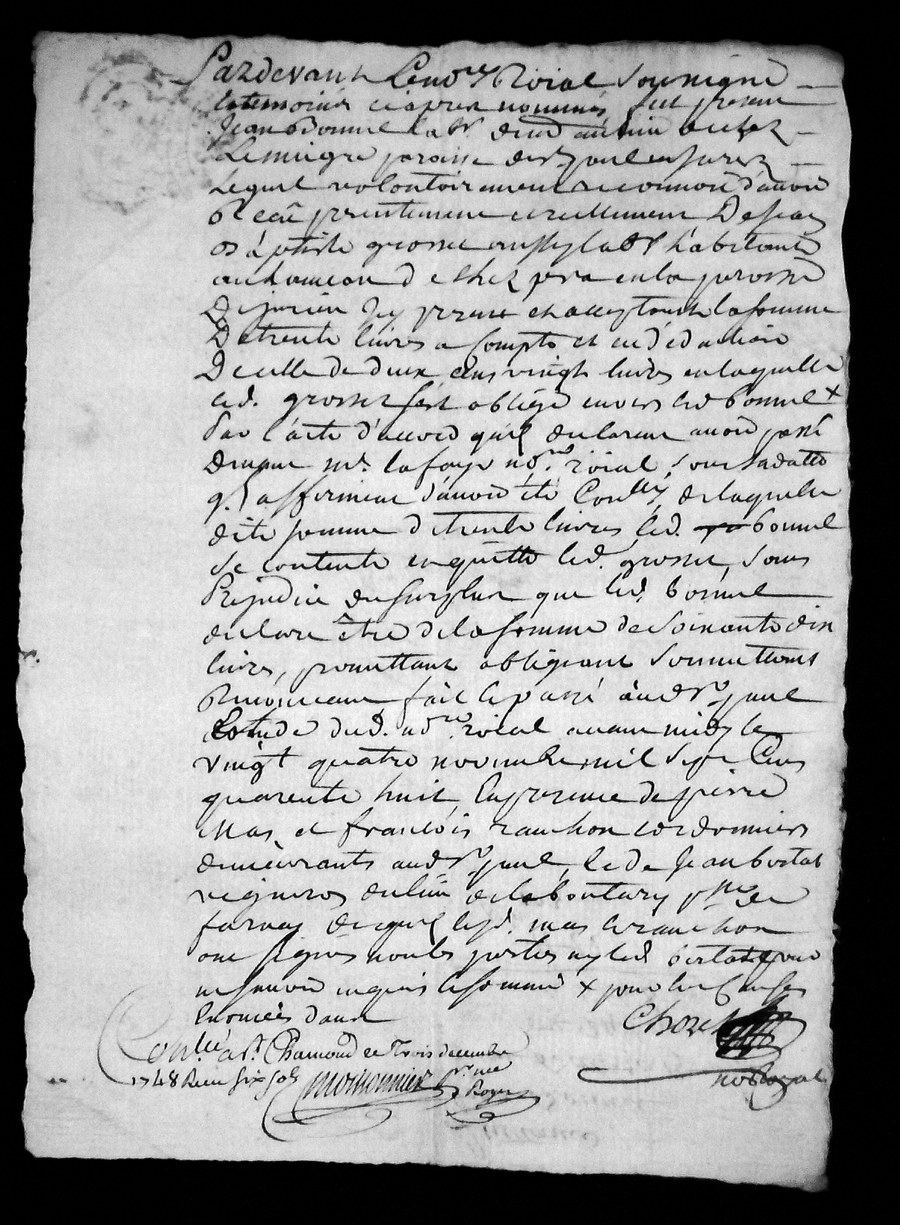 Pardevant Le no.re Roial Soussigné
et temoins ci apres nommés fut present
Jean Bonnel lab.r du lieu de chez
Le mugre paroisse de s.t paul en Jarez
Lequel volontairement reconnoit d'avoir
Receu presentement et reellement De Jean
grosset aussy lab.r habitant
au hameau de chez pera en la parosse
De Jurieu Icy present et acceptant la somme
De trente livres a Compte et en deduction
De celle de deux cens vingt livres en laquelle
led. grosset s'est obligé envers led bonnel +
Par l'acte d'accord quil declarent avoir passé
devant m.e lafaye no.re roial, sous sa datte
q'l affirment d'avoir été Conllé, de laquelle
dite somme de trente livres led. bonnel
se contente en quitte led. grosset, sans
Prejudice du surplus que led. bonnel
declare être de la somme de soixante dix
livres, promettant obligeant soumettant
Renonceant fait et passé aud s.t paul
Etude dud. no.re roial avant midy le
vingt quatre novembre mil sept Cens
quarente huit, En presence de pierre
Mas, et francois ranchon cordonniers
demeurants aud s.t paul, et de Jean bertat
vigneron du lieu de la bontary p.sse de
farnay desquels lesd. mas et ranchon
ont signés non les parties ny led bertat pour
ne scavoir enquis et sommé + pour les Causes
Enoncées dans
Chorel
no Royal
Con.llé a s.t Chamond ce Trois decembre
1748 Receu six sols